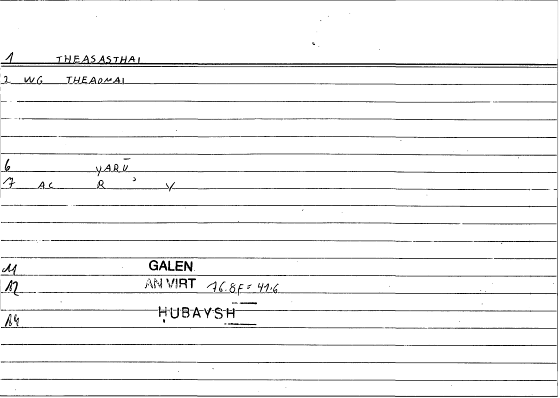 1 THEASASTHAI
2 WG THEAOMAI
6 yARŪ
7 AC R ʾ Y
11 GALEN
12 AN VIRT 76.8F = 41.6
14 ḤUBAYSH